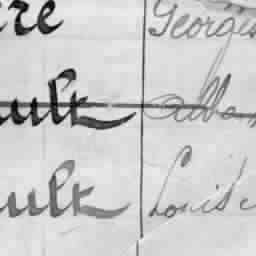 re Georges
ault Alban
ault Louise